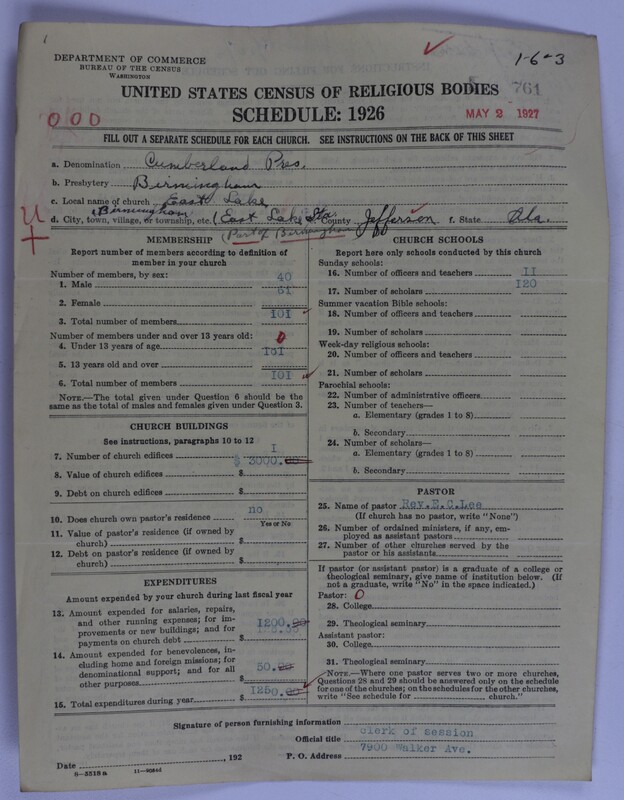 1-6-3
DEPARTMENT OF COMMERCE
BUREAU OF THE CENSUS
WASHINGTON
UNITED STATES CENSUS OF RELIGIOUS BODIES
761
SCHEDULE: 1926
MAY 2 1927
000
FILL OUT A SEPARATE SCHEDULE FOR EACH CHURCH. SEE INSTRUCTIONS ON THE BACK OF THIS SHEET
a. Denomination Cumberland Pres.
b. Presbytery Birmingham
c. Local name of church East Lake
d. City, town, village, or township, etc. Birmingham (East Lake Sta County Jefferson f. State Ala.
(Part of Birmingham)
U
MEMBERSHIP
Report number of members according to definition of
member in your church
Number of members, by sex:
1. Male 40
2. Female 61
3. Total number of members 101
Number of members under and over 13 years old:
4. Under 13 years of age 0
5. 13 years old and over 101
6. Total number of members 101
NOTE.—The total given under Question 6 should be
same as the total of males and females given under Question 3.
CHURCH BUILDINGS
See instructions, paragraphs 10 to 12
7. Number of church edifices 1
8. Value of church edifices $ 3000.00
9. Debt on church edifices $
10. Does church own pastor's residence no
Yes or No
11. Value of pastor's residence (if owned by
church) $
12. Debt on pastor's residence (if owned by
church) $
EXPENDITURES
Amount expended by your church during last fiscal year
13. Amount expended for salaries, repairs,
and other running expenses; for im-
provements or new buildings; and for
payments on church debt $ 1200.00
14. Amount expended for benevolences, in-
cluding home and foreign missions; for
denominational support; and for all
other purposes $ 50.00
15. Total expenditures during year $ 1250.00
CHURCH SCHOOLS
Report here only schools conducted by this church
Sunday schools:
16. Number of officers and teachers 11
17. Number of scholars 120
Summer vacation Bible schools:
18. Number of officers and teachers
19. Number of scholars
Week-day religious schools:
20. Number of officers and teachers
21. Number of scholars
Parochial schools:
22. Number of administrative officers
23. Number of teachers—
a. Elementary (grades 1 to 8)
b. Secondary
24. Number of scholars—
a. Elementary (grades 1 to 8)
b. Secondary
PASTOR
25. Name of pastor Rev. E.C.Lee
(If church has no pastor, write "None")
26. Number of ordained ministers, if any, em-
ployed as assistant pastors
27. Number of other churches served by the
pastor or his assistants
If pastor (or assistant pastor) is a graduate of a college or
theological seminary, give name of institution below. (If
not a graduate, write "No" in the space indicated.)
Pastor: 0
28. College
29. Theological seminary
Assistant pastor:
30. College
31. Theological seminary
NOTE.—Where one pastor serves two or more churches,
Questions 28 and 29 should be answered only on the schedule
for one of the churches; on the schedules for the other churches,
write "See schedule for church."
Signature of person furnishing information
Official title clerk of session
Date , 192 P. O. Address 7900 Walker Ave.
8-3518a